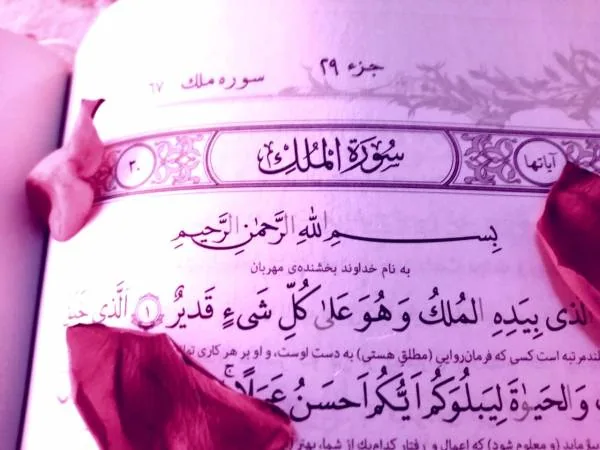 جزء ۲۹
سوره ملک ۶۷
آیاتها سُورَةُ المُلكِ ۳۰
بِسمِ اللهِ الرَّحمٰنِ الرَّحیمِ
به نام خداوند بخشنده‌ی مهربان
الَّذی بِیَدِهِ المُلكُ وَ هُوَ عَلیٰ كُلِّ شَیءٍ قَدیرٌ ۱ الَّذی
است کسی که فرمان‌روایی (مطلق هستی) به دست اوست، و او بر هر کاری
وَالحَیوٰةَ لِیَبلُوَكُم اَیُّكُم اَحسَنُ عَمَلًا
(و معلوم شود) که اعمال و رفتار کدام‌یک از شما، بهتر